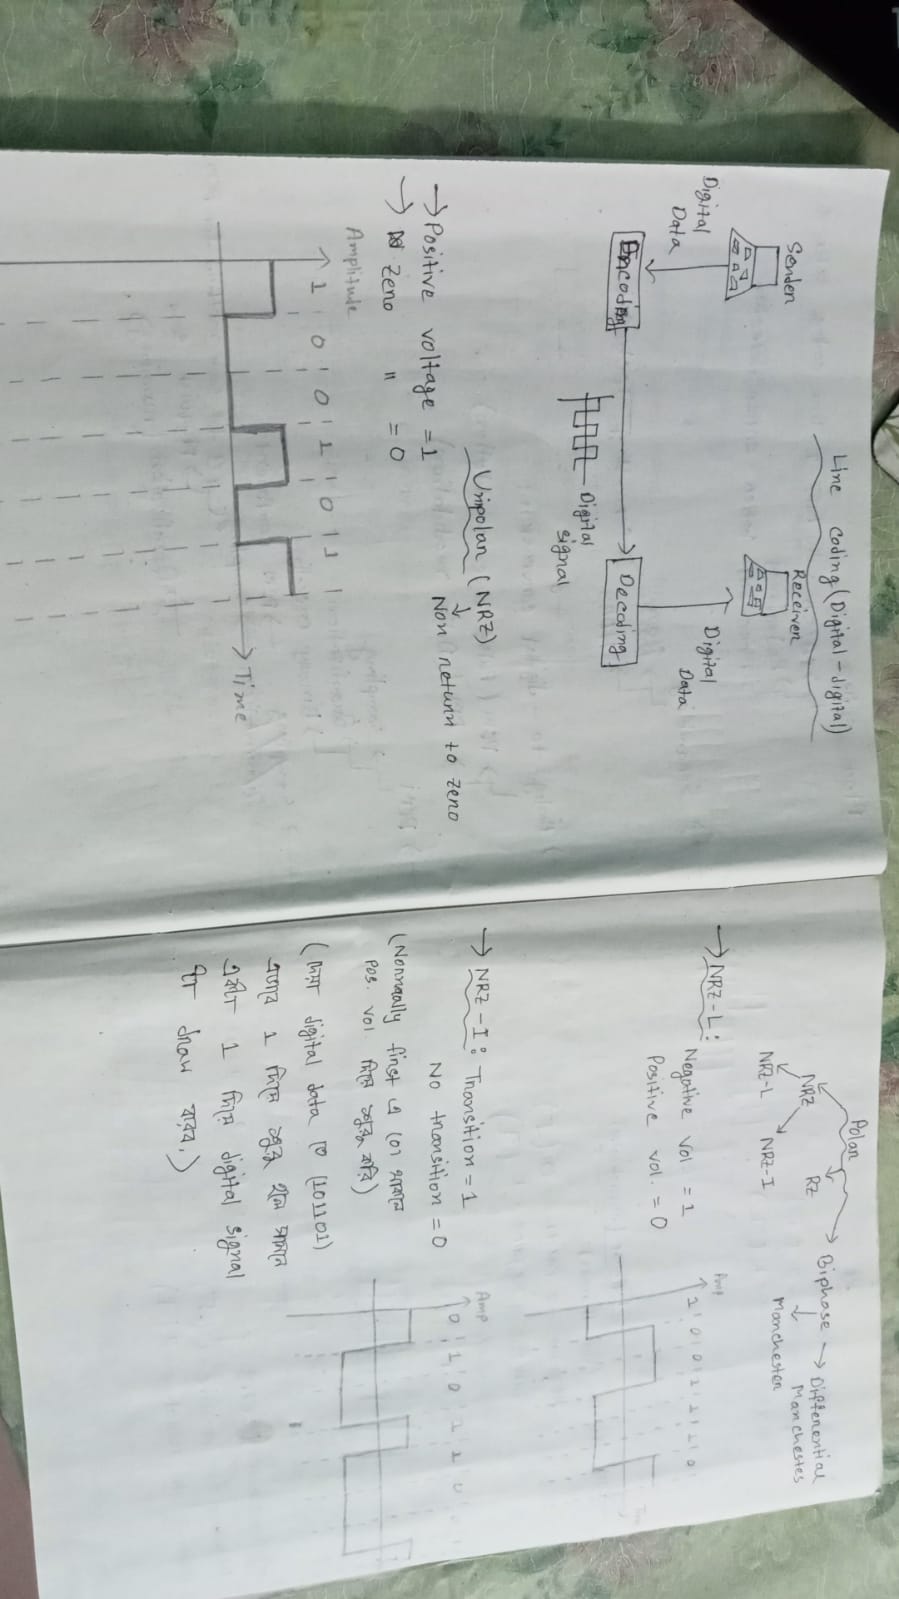 Line coding (Digital-digital)
Sender
Receiver
Digital
Data
Digital
Data
Encoding
Decoding
Digital
signal
Unipolar (NRZ)
Non return to zero
→ Positive voltage = 1
→ zero " = 0
Amplitude
1 0 0 1 0 1
Time
Polar
NRZ
RZ
Biphase → Differential
Manchestes
Manchester
NRZ-L
NRZ-I
→ NRZ-L:
Negative vol = 1
Positive vol. = 0
Amp
1 0 0 1 1 1 0
Time
→ NRZ-I: Transition = 1
No transition = 0
(Normally first এ (0) থাকলে
pos. vol. দিয়ে শুরু করি)
Amp
0 1 0 1 1 0
digital data (101101)
এভাবে 1 দিয়ে শুরু হলে সামনে
একটা 1 দিয়ে digital signal
draw করব.)